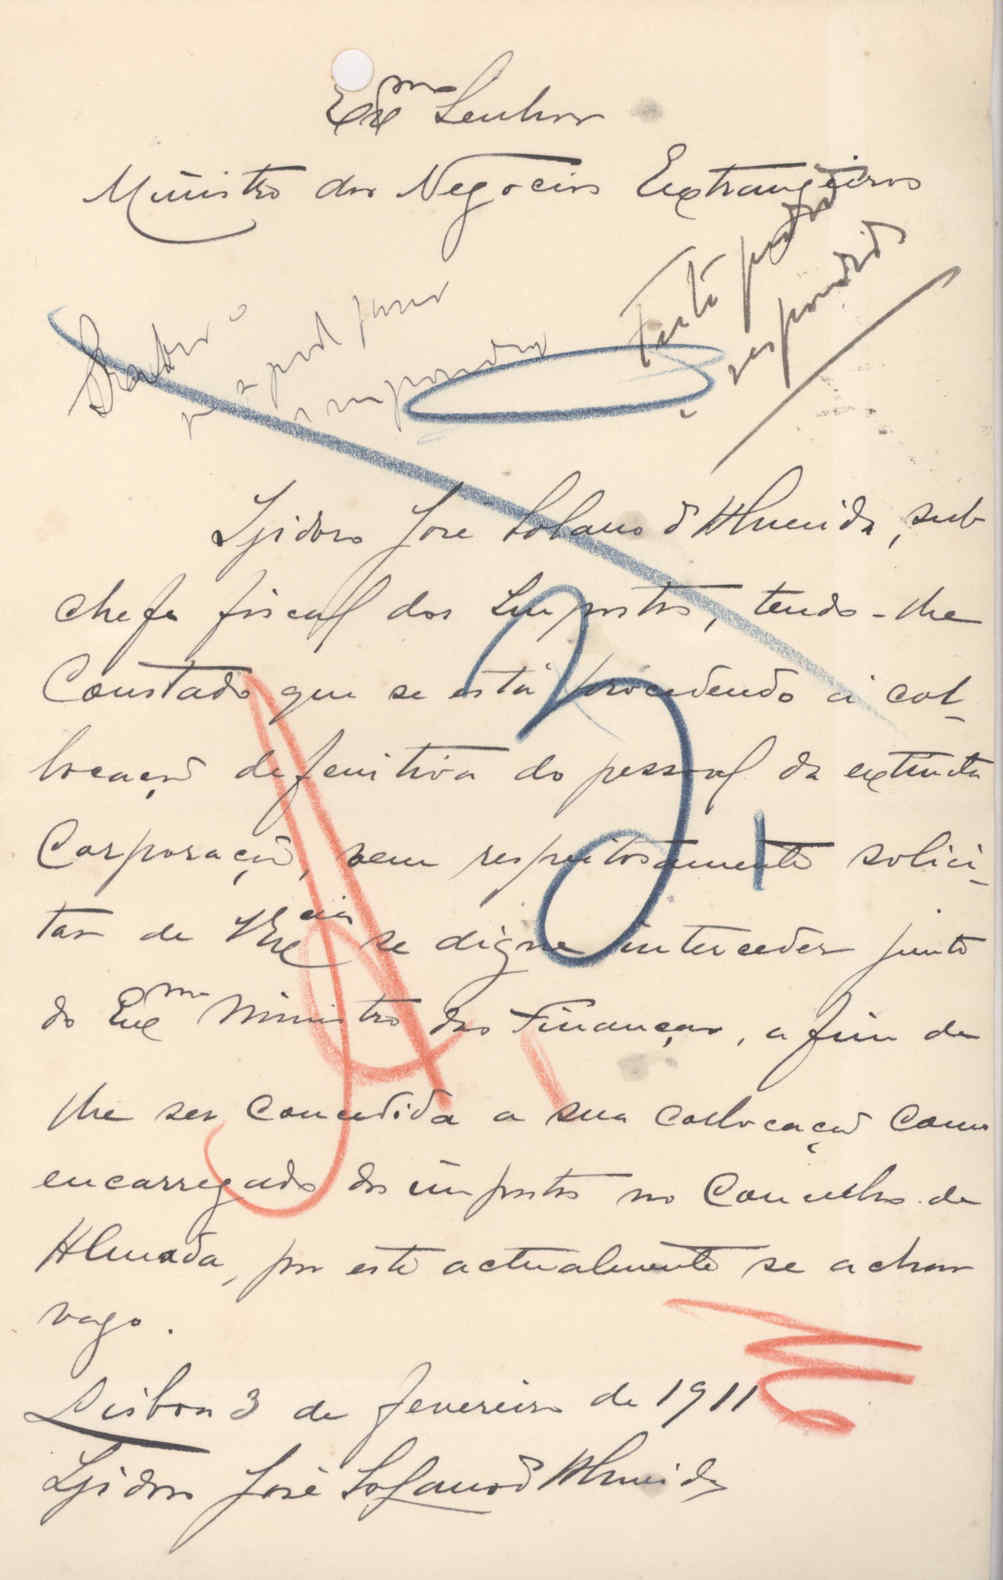 Exmo Senhor
Ministro dos Negocios Extrangeiros
Feito pedido
respondido
Isidoro José Solano d'Almeida, sub
chefe fiscal dos Impostos, tendo-lhe
Constado que se está procedendo á col-
locação defenitiva do pessoal da extincta
Corporação, vem respeitosamente solici-
tar de V Excia se digne interceder junto
do Exmo Ministro das Finanças, a fim de
lhe ser concedida a sua collocação como
encarregado dos impostos no Concelho de
Almada, por este actualmente se achar
vago.
Lisboa 3 de fevereiro de 1911
Isidoro José Solano d'Almeida